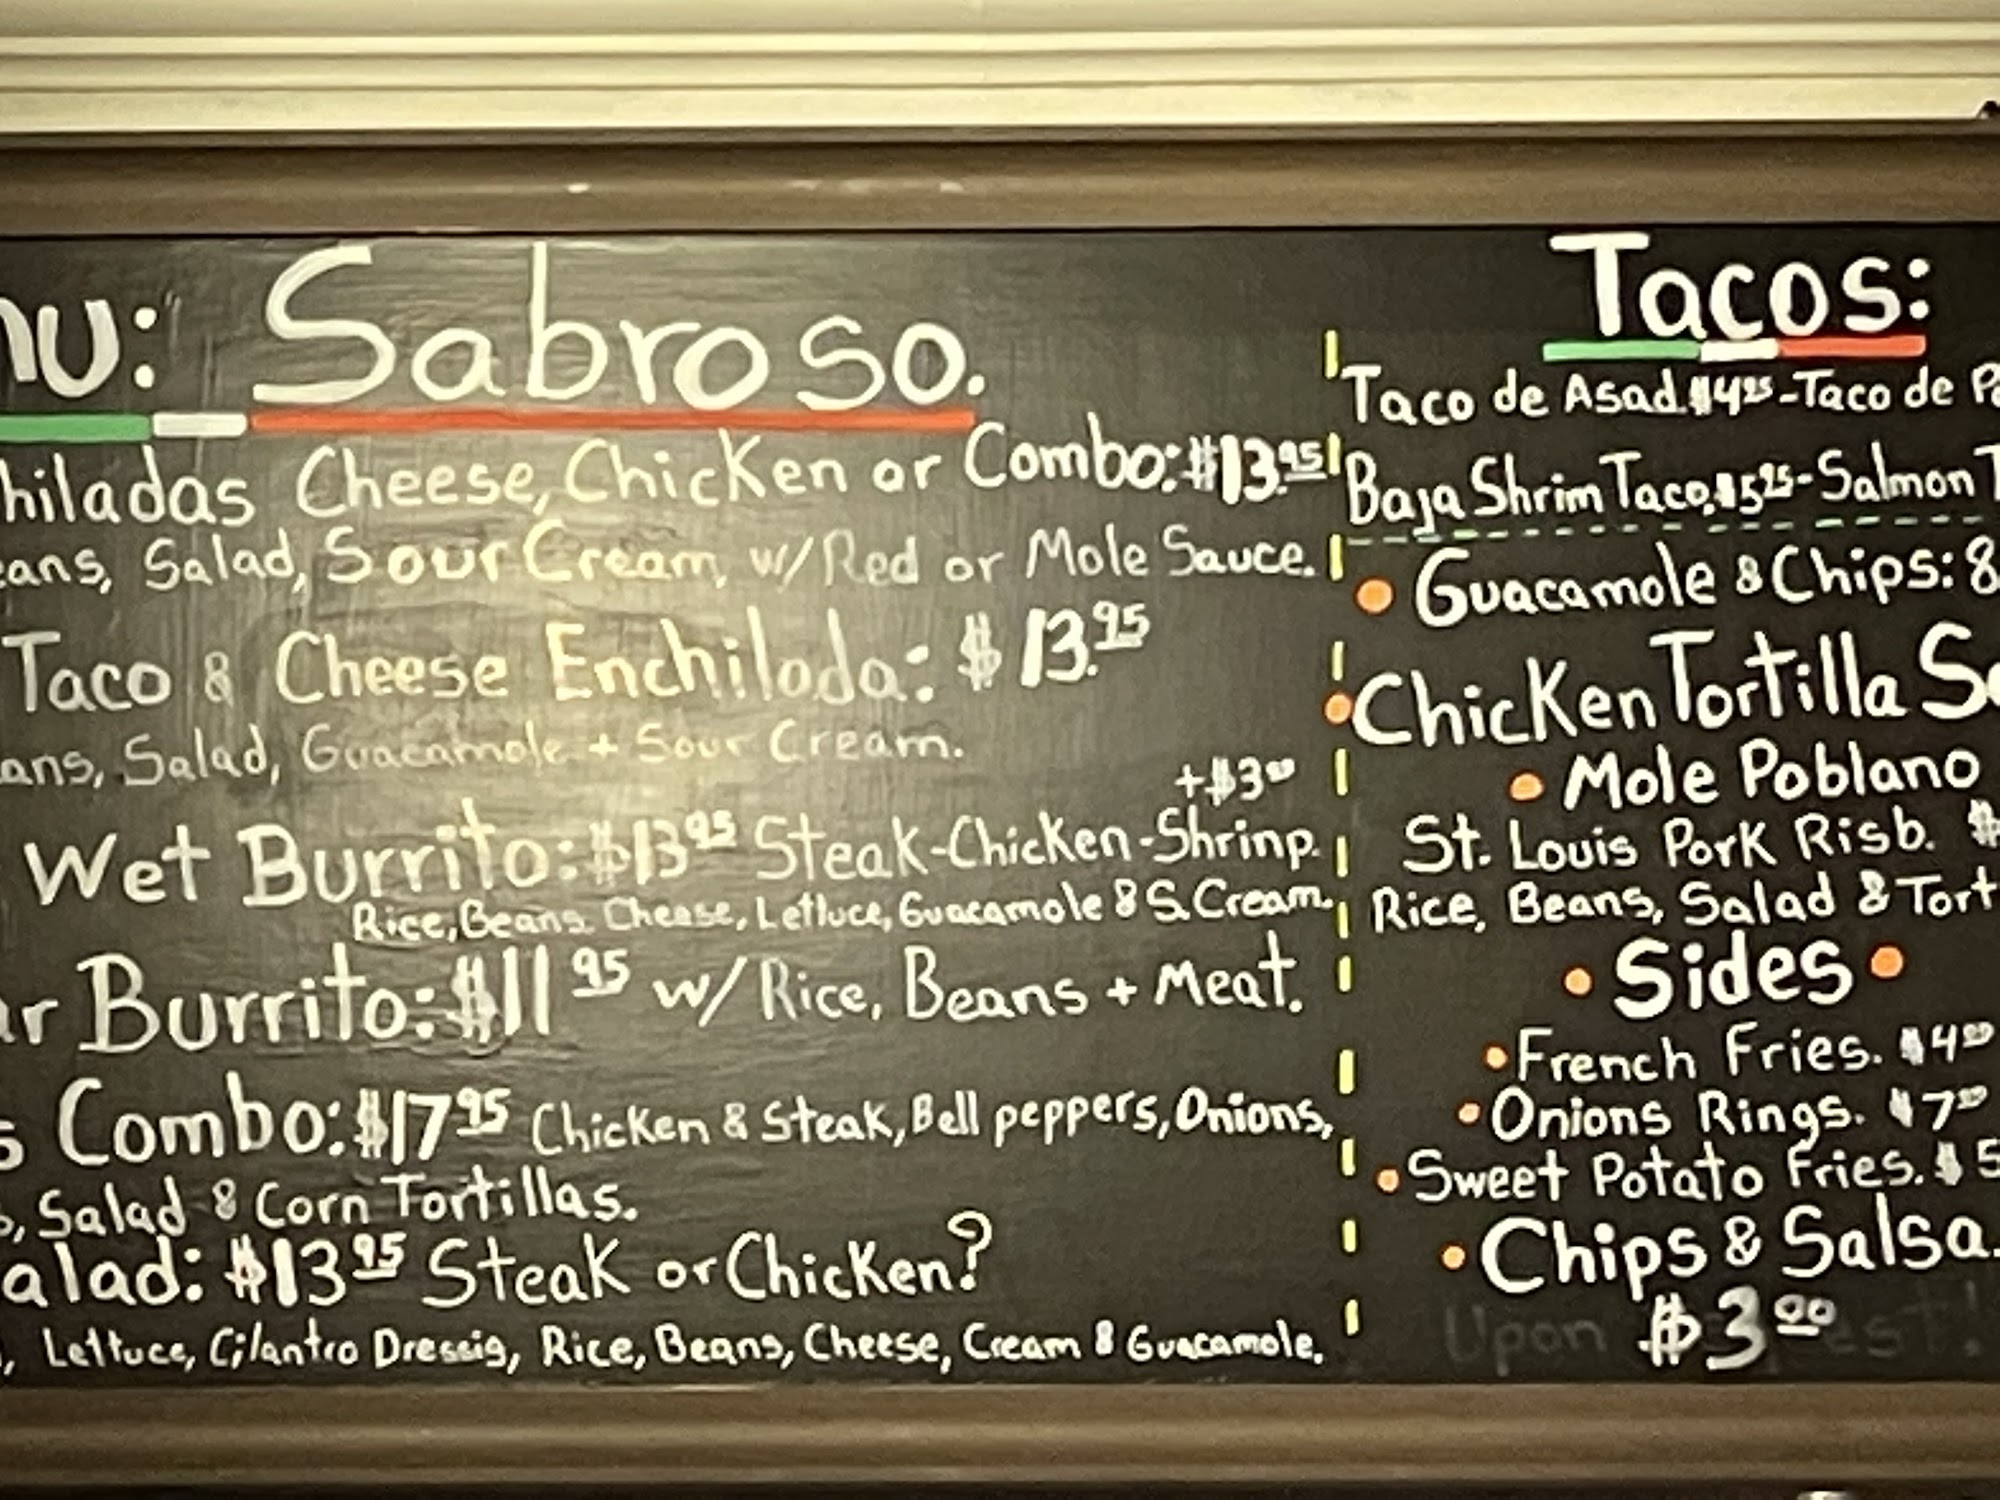 nu: Sabroso.
hiladas Cheese, Chicken or Combo: $13.95
eans, Salad, Sour Cream, w/ Red or Mole Sauce.
Taco & Cheese Enchilada: $13.95
ans, Salad, Guacamole + Sour Cream.
+$3.00
Wet Burrito: $13.95 Steak-Chicken-Shrinp.
Rice, Beans, Cheese, Lettuce, Guacamole & S. Cream.
ar Burrito: $11.95 w/ Rice, Beans + Meat.
s Combo: $17.95 Chicken & Steak, Bell peppers, Onions,
, Salad & Corn Tortillas.
alad: $13.95 Steak or Chicken?
, Lettuce, Cilantro Dressig, Rice, Beans, Cheese, Cream & Guacamole.
Tacos:
Taco de Asad. $4.25 - Taco de P
Baja Shrim Taco, $5.25 - Salmon T
• Guacamole & Chips: 8
• Chicken Tortilla So
• Mole Poblano
St. Louis Pork Risb. $
Rice, Beans, Salad & Tort
• Sides •
• French Fries. $4.00
• Onions Rings. $7.00
• Sweet Potato Fries. $5
• Chips & Salsa.
Upon $3.00 est!